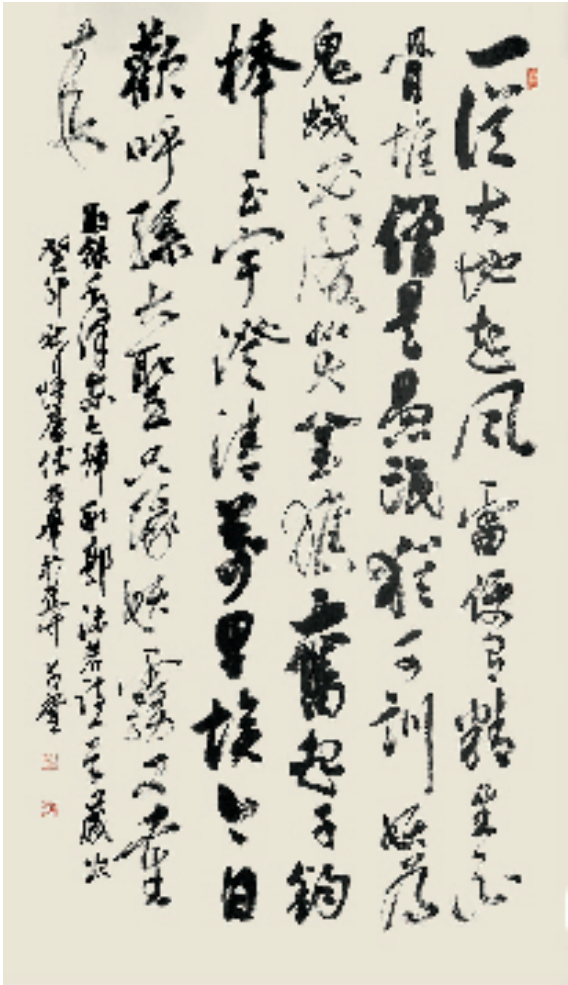 一從大地起風雷便有精生白
骨堆僧是愚氓猶可訓妖為
鬼蜮必成災金猴奮起千鈞
棒玉宇澄清萬里埃今日
歡呼孫大聖只緣妖霧又重
來
敬錄毛澤東七律和郭沫若詩一首歲次
癸卯秋月